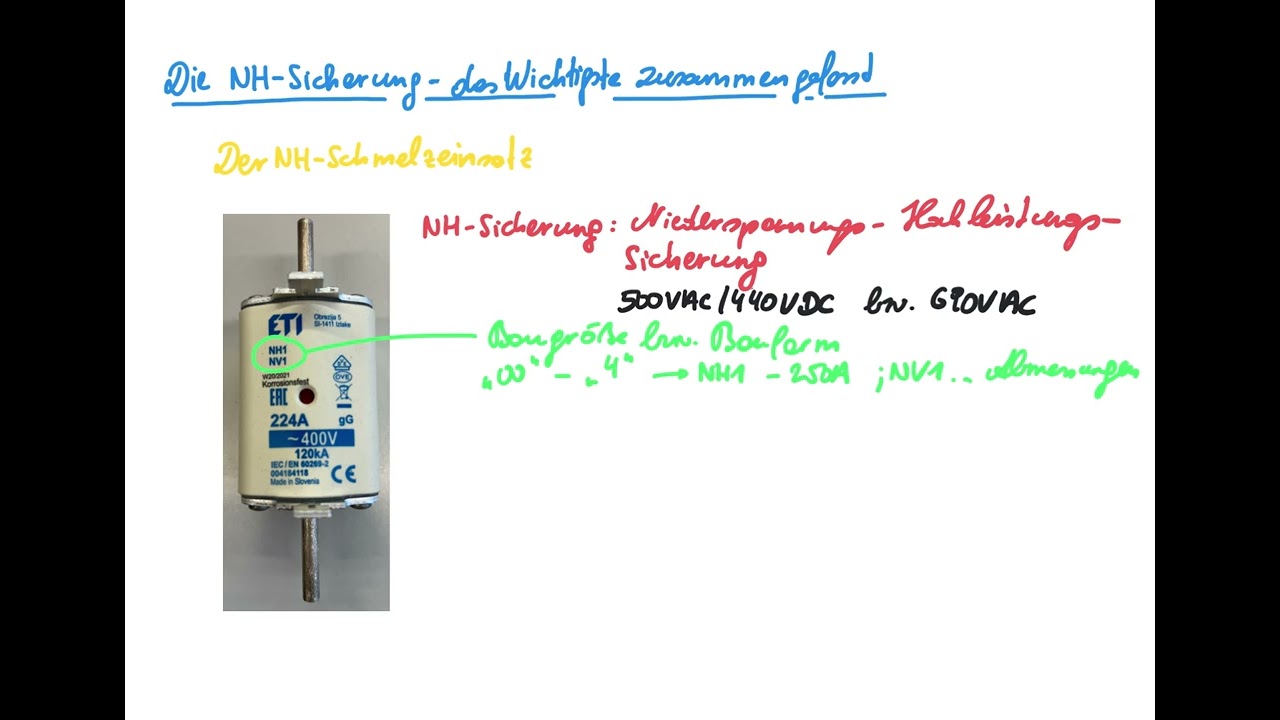 Die NH-Sicherung - das Wichtigste zusammengefasst
Der NH-Schmelzeinsatz
NH-Sicherung: Niederspannungs- Hochleistungs-
Sicherung
500VAC/440VDC bzw. 690VAC
Baugröße bzw. Bauform
„00" - „4" → NH1 - 250A ; NV1.. Abmessungen
ETI
Obrezija 5
SI-1411 Izlake
NH1
NV1
W20/2021
Korrosionsfest
ÖVE
EAC
224A gG
~400V
120kA
IEC/EN 60269-2
004184118
Made in Slovenia
CE